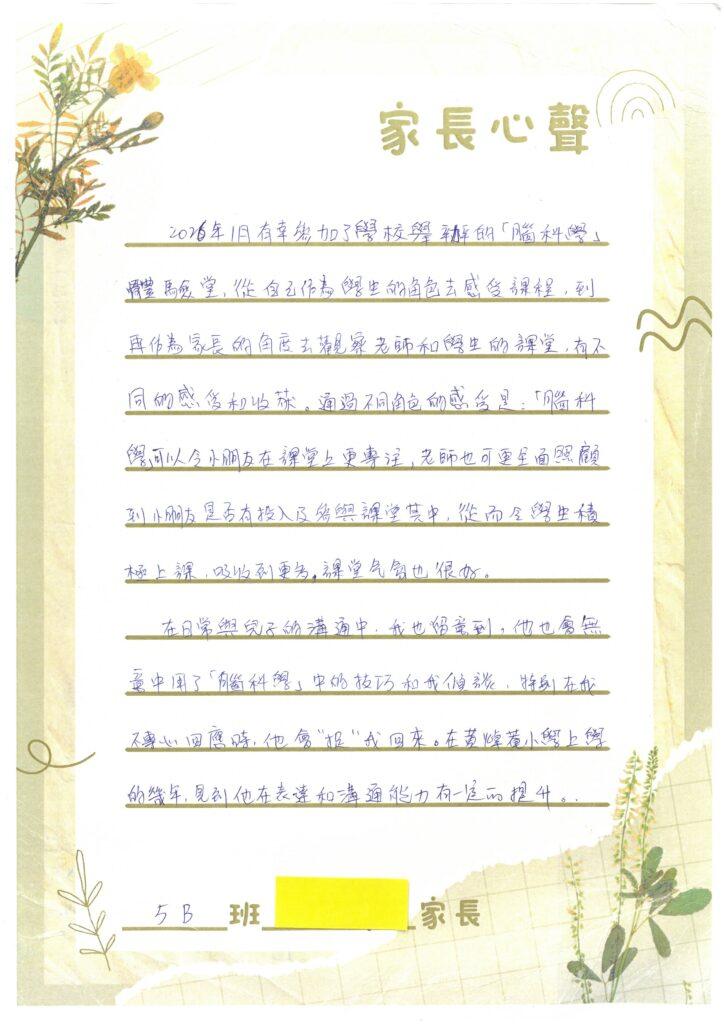 家長心聲
2026年1月有幸參加了學校舉辦的「腦科學」
體驗堂,從自己作為學生的角色去感受課程,到
再作為家長的角度去觀察老師和學生的課堂,有不
同的感受和收獲。通過不同角色的感受是:「腦科
學可以令小朋友在課堂上更專注,老師也可更全面照顧
到小朋友是否有投入及參與課堂其中,從而令學生積
極上課,吸收到更多。課堂气氛也很好。
在日常與兒子的溝通中,我也留意到,他也會無
意中用了「腦科學」中的技巧和我傾談,特別在我
不專心回應時,他會"捉"我回來。在黃焯菴小學上學
的幾年,見到他在表達和溝通能力有一定的提升。
5B 班 家長